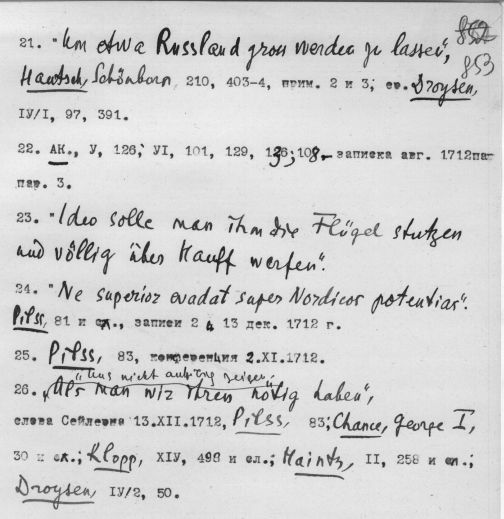 852
853
21. "Um etwa Russland gross werden zu lassen",
Hantsch, Schönborn, 210, 403-4, прим. 2 и 3; ср. Droysen,
IУ/I, 97, 391.
22. АК., У, 126; УI, 101, 129, 136; 108 - записка авг. 1712
пар. 3.
23. "Ideo solle man ihm die Flügel stutzen
und völlig über Hauff werfen".
24. "Ne superior evadat super Nordicos potentias".
Pilss, 81 и сл., записи 2 и 13 дек. 1712 г.
25. Pilss, 83, конференция 2.XI.1712.
"uns nicht zeigen,
26. "Als man wir ihren nötig haben",
слова Сейлерна 13.XII.1712, Pilss, 83; Chance, George I,
30 и сл.; Klopp, XIУ, 498 и сл.; Haintz, II, 258 и сл.;
Droysen, IУ/2, 50.